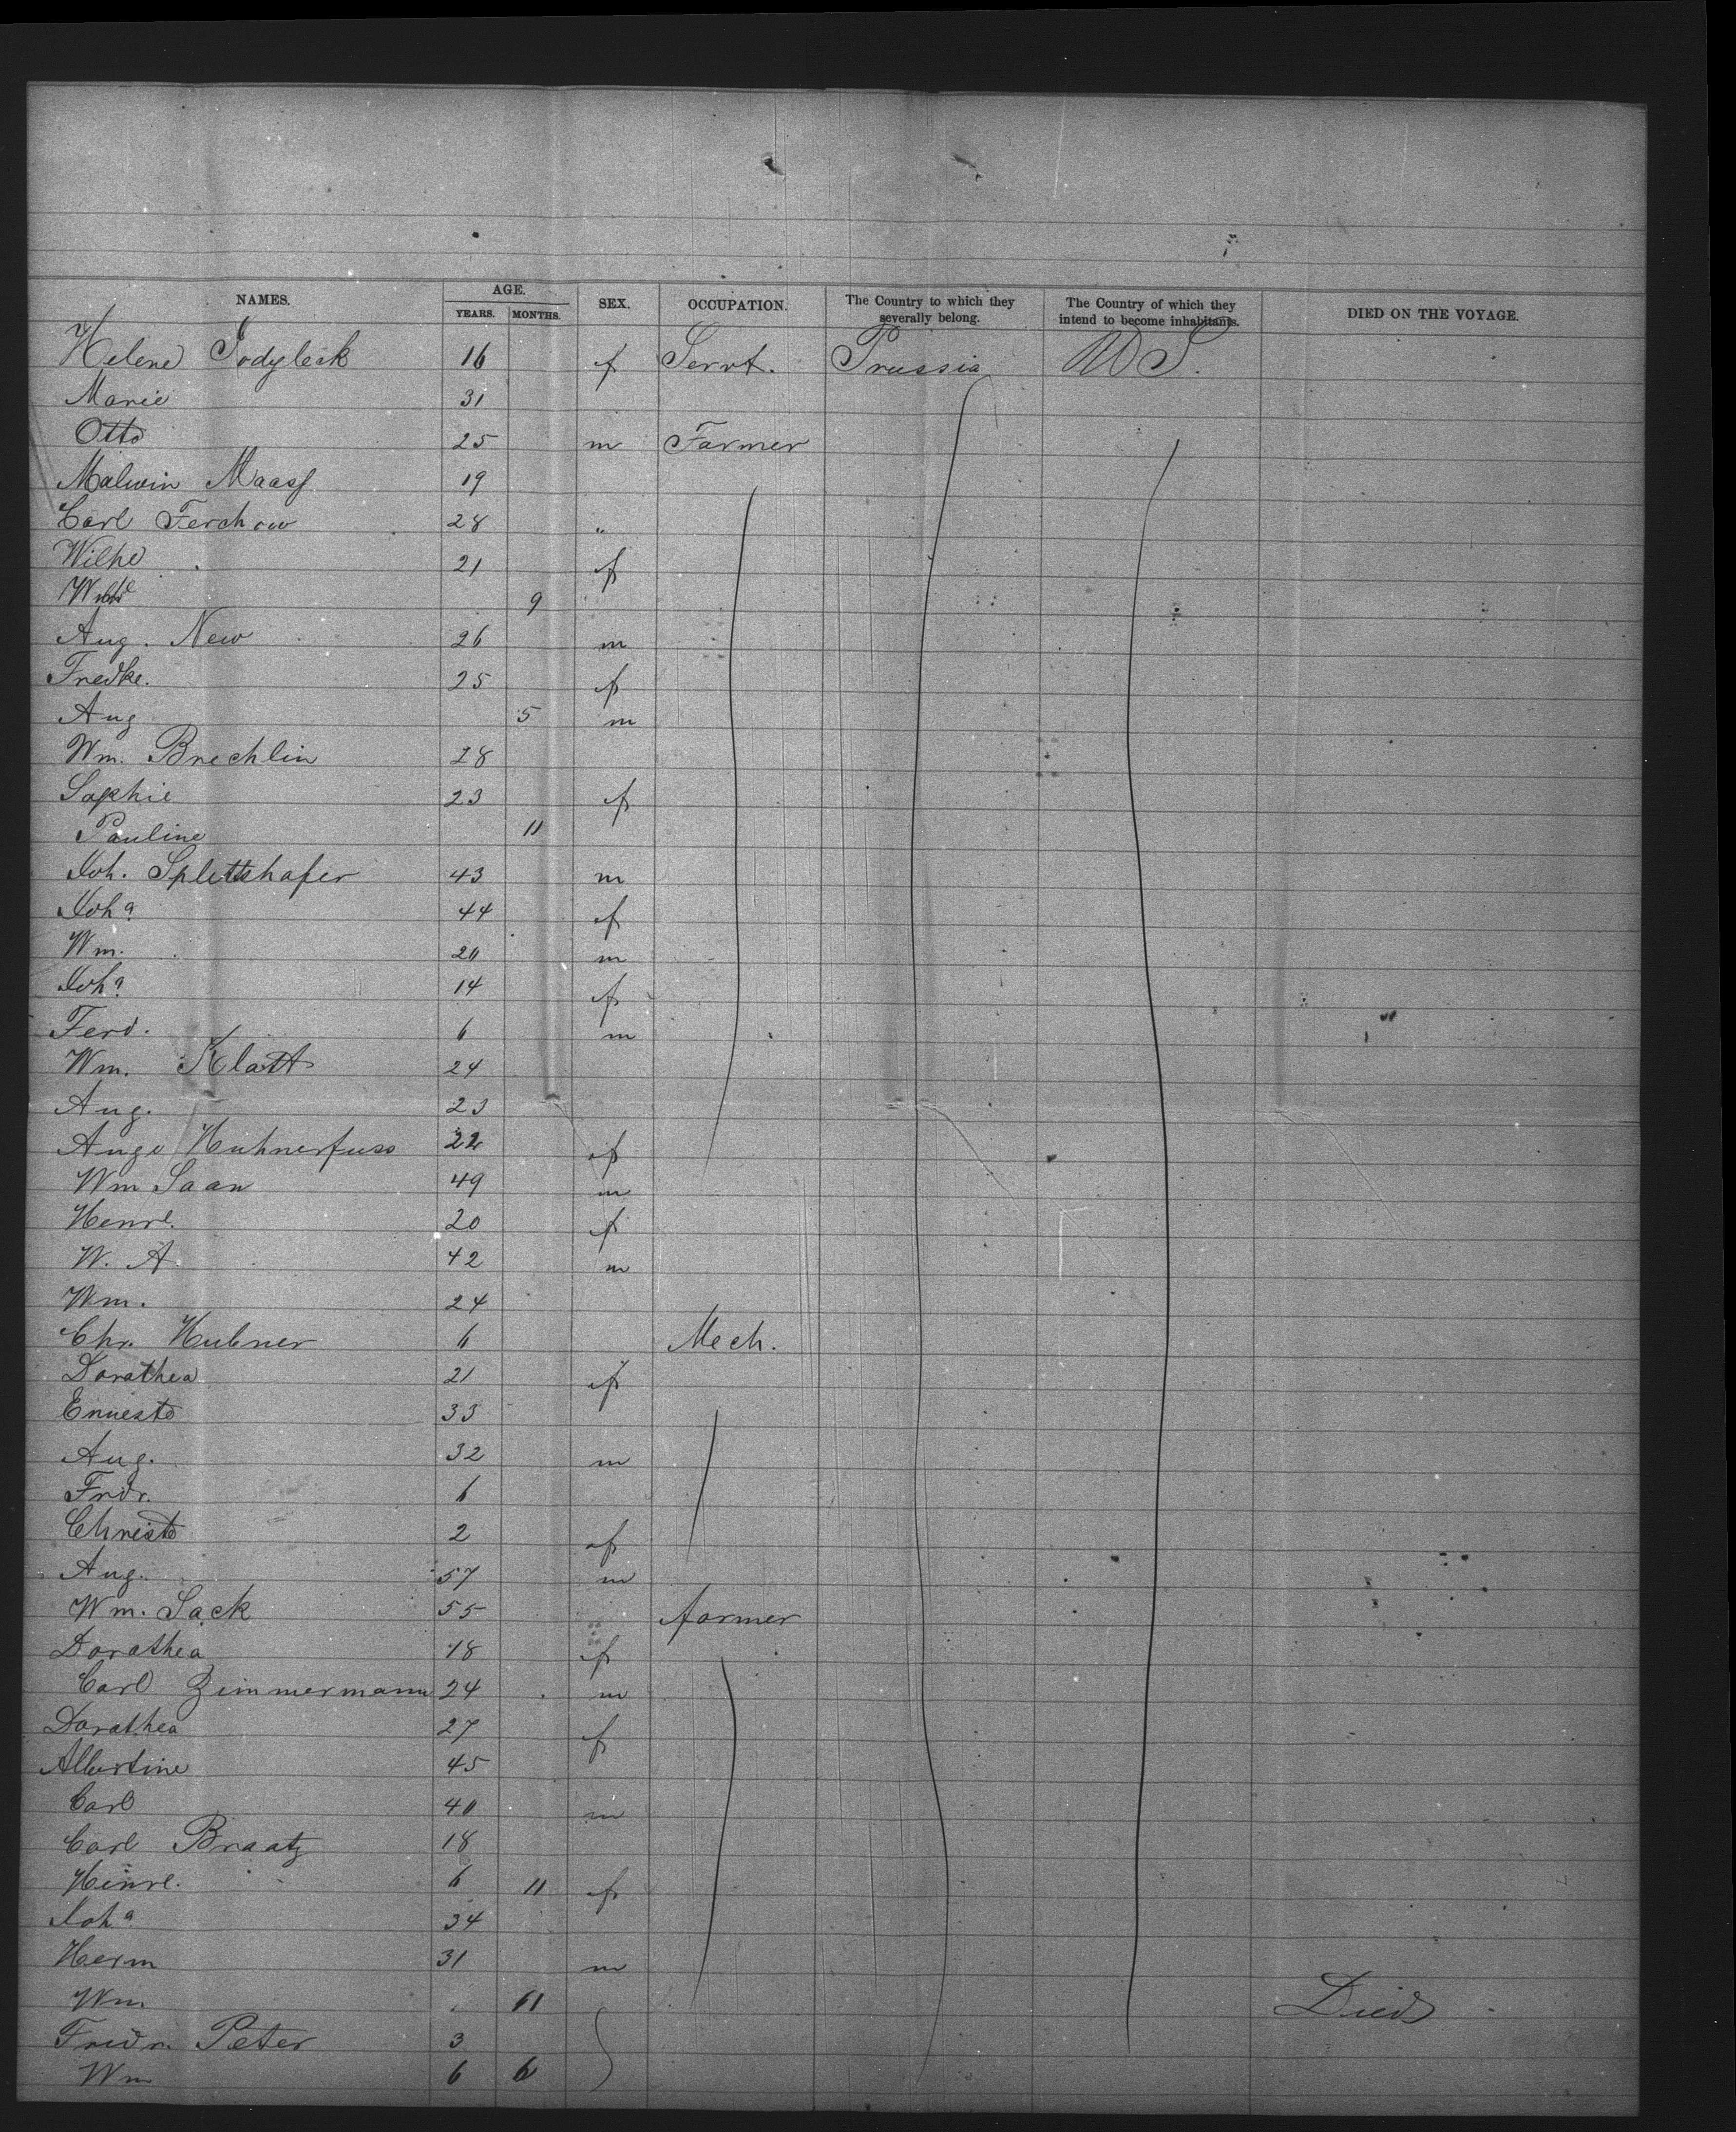 NAMES. AGE. YEARS. MONTHS. SEX. OCCUPATION. The Country to which they severally belong. The Country of which they intend to become inhabitants. DIED ON THE VOYAGE.
Helene 16 f Servt. Prussia U S.
Marie 31
Otto 25 m Farmer
Malwin Maass 19
Carl Ferchow 28 "
Wilhe 21 f
9
Aug. New 26 m
Fredke. 25 f
Aug 5 m
Wm. Brechlin 28
Sophie 23 f
Pauline 11
Joh. Splettshafer 43 m
Joha 44 f
Wm. 20 m
Joha 14 f
Ferd. 6 m
Wm. Klatt 24
Aug. 23
Auge Huhnerfuss 22 f
Wm Saan 49 m
Henre. 20 f
W. A. 42 m
Wm. 24
Chr. Hubner 6 Mech.
Dorathea 21 f
33
Aug. 32 m
Fridr. 6
Christe 2 f
Aug. 57 m
Wm. Sack 55 farmer
Dorathea 18 f
Carl Zimmermann 24 m
Dorathea 27 f
Albertine 45
Carl 40 m
Carl Braatz 18
Heinre. 6 11 f
Joha 34
Herm 31 m
Wm 11 Died
Fredr. Peter 3
Wm 6 6